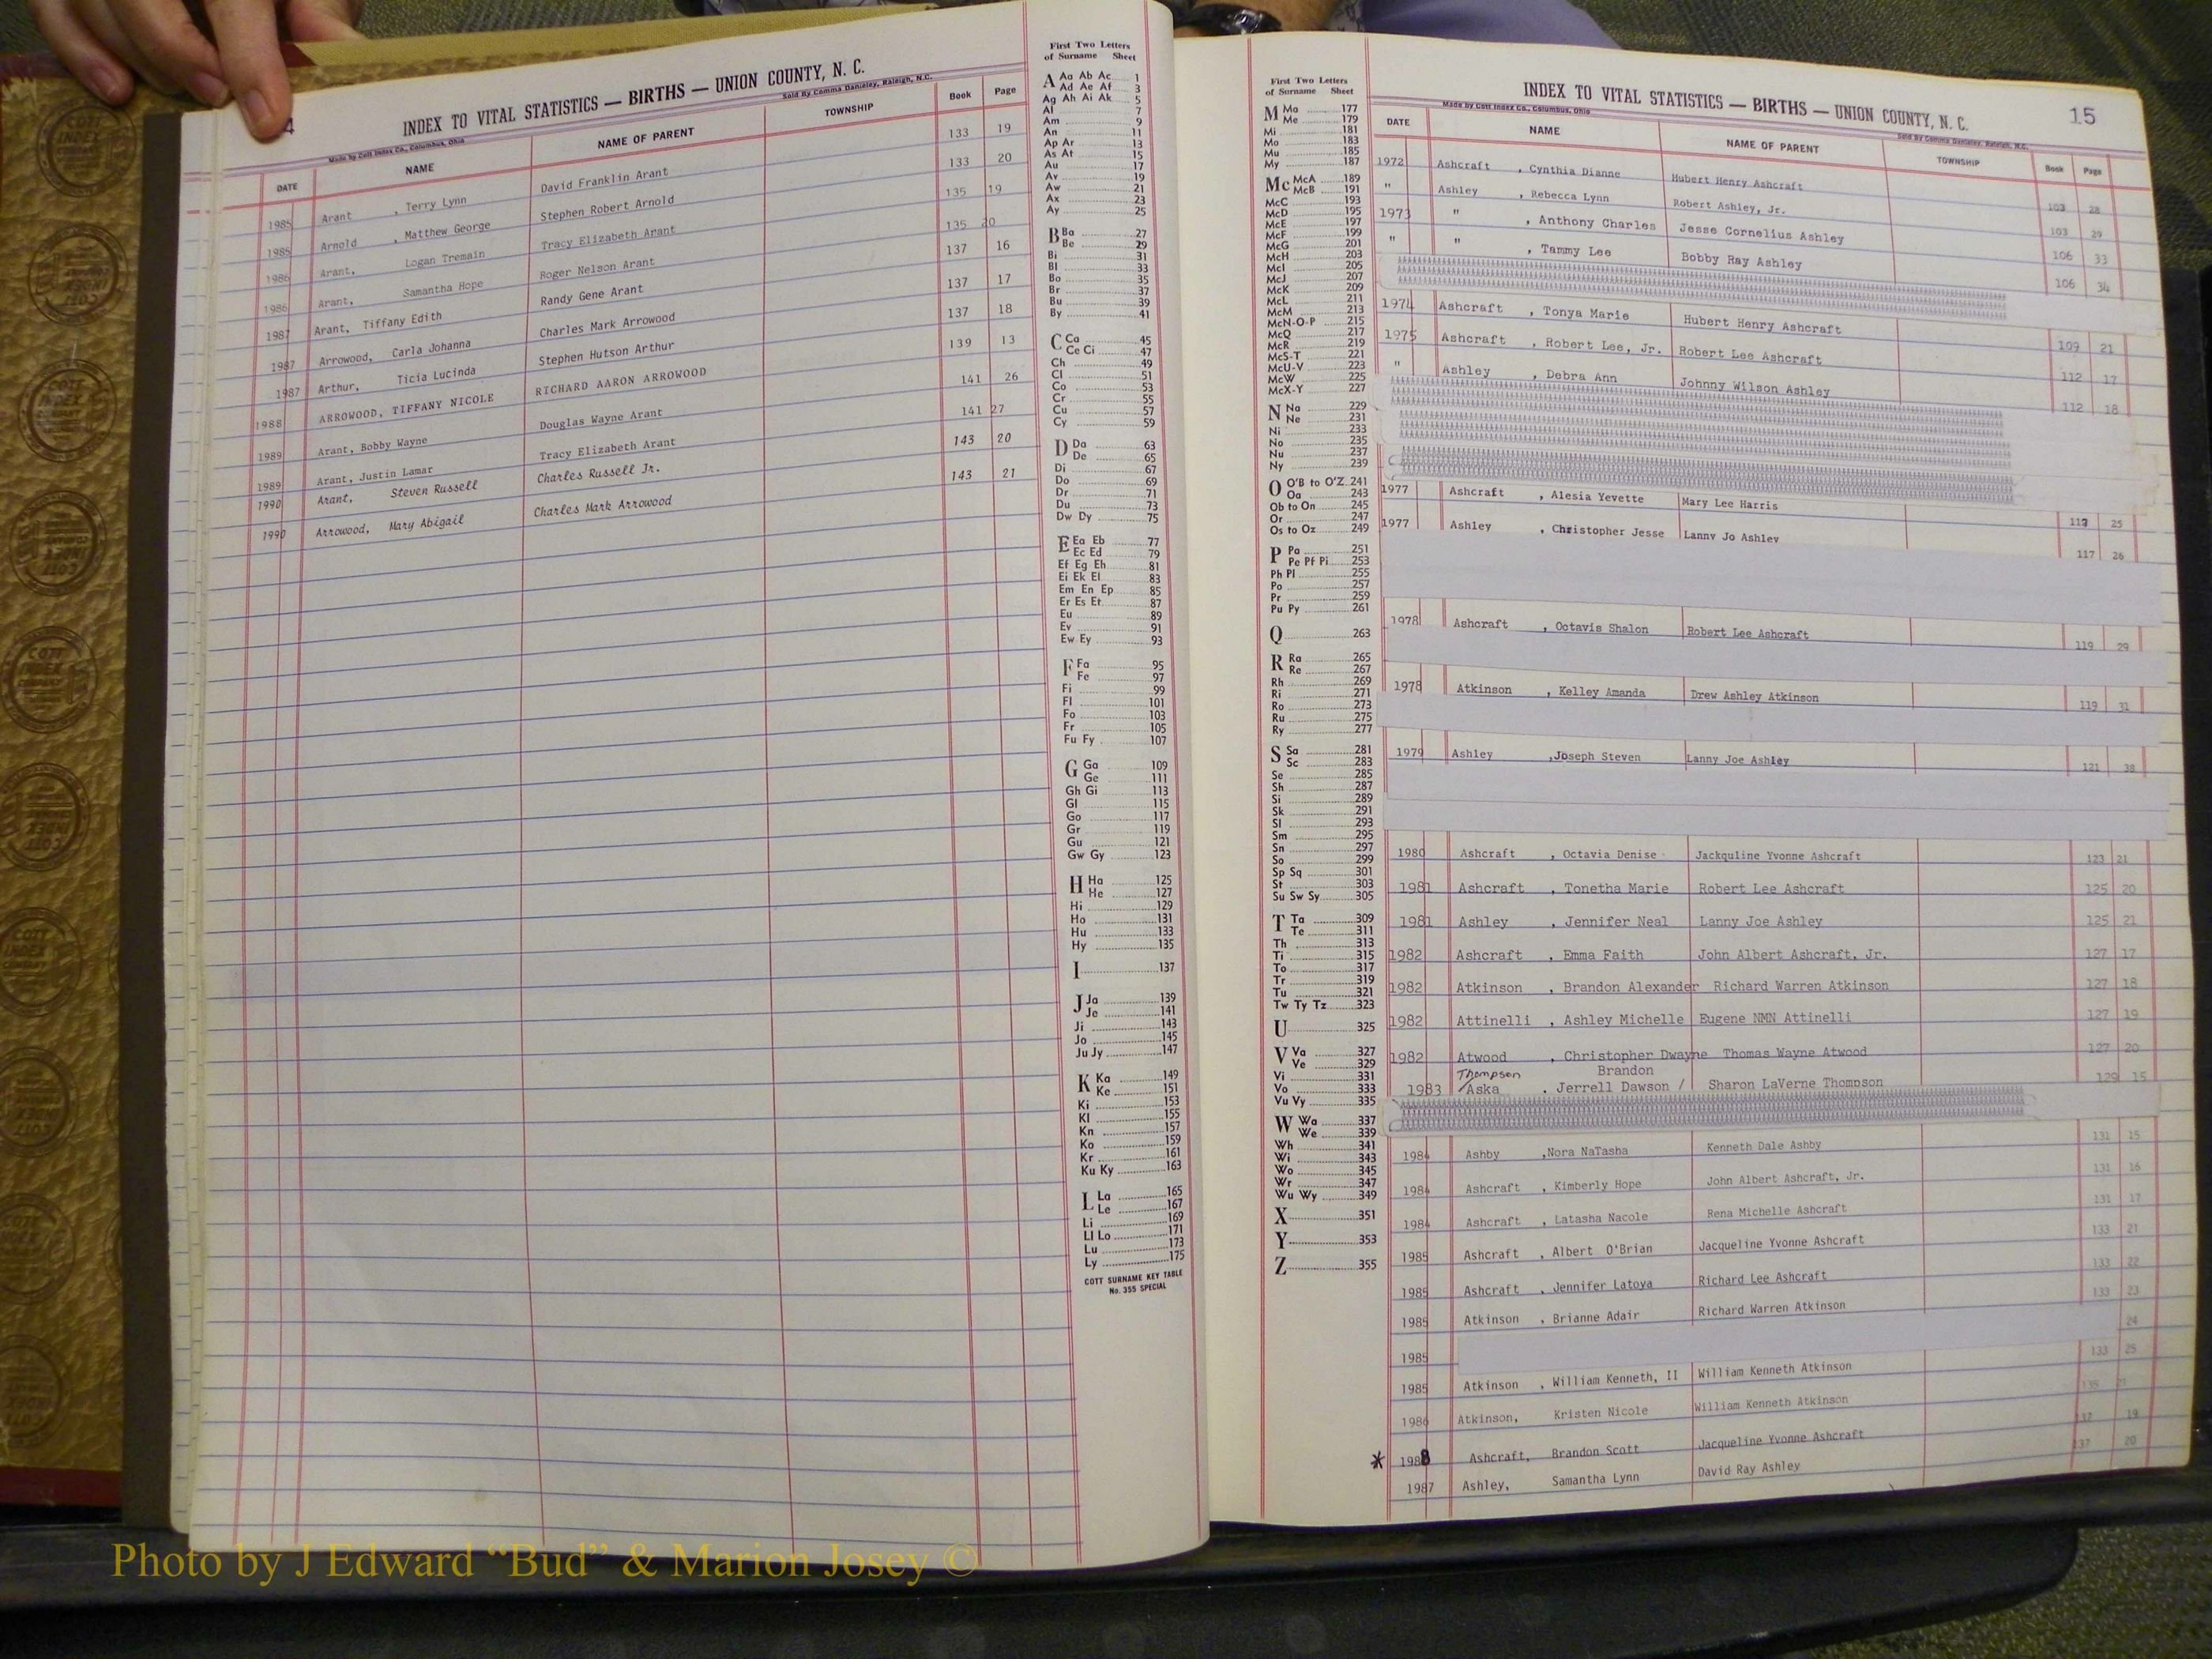 4
INDEX TO VITAL STATISTICS — BIRTHS — UNION COUNTY, N. C.
Made by Cott Index Co., Columbus, Ohio
Sold By Comma Danieley, Raleigh, N.C.
DATE NAME NAME OF PARENT TOWNSHIP Book Page
1985 Arant , Terry Lynn David Franklin Arant 133 19
1985 Arnold , Matthew George Stephen Robert Arnold 133 20
1986 Arant, Logan Tremain Tracy Elizabeth Arant 135 19
1986 Arant, Samantha Hope Roger Nelson Arant 135 20
1987 Arant, Tiffany Edith Randy Gene Arant 137 16
1987 Arrowood, Carla Johanna Charles Mark Arrowood 137 17
1987 Arthur, Ticia Lucinda Stephen Hutson Arthur 137 18
1988 ARROWOOD, TIFFANY NICOLE RICHARD AARON ARROWOOD 139 13
1989 Arant, Bobby Wayne Douglas Wayne Arant 141 26
1989 Arant, Justin Lamar Tracy Elizabeth Arant 141 27
1990 Arant, Steven Russell Charles Russell Jr. 143 20
1990 Arrowood, Mary Abigail Charles Mark Arrowood 143 21
First Two Letters
of Surname Sheet
A Aa Ab Ac 1
Ad Ae Af 3
Ag Ah Ai Ak 5
Al 7
Am 9
An 11
Ap Ar 13
As At 15
Au 17
Av 19
Aw 21
Ax 23
Ay 25
B Ba 27
Be 29
Bi 31
Bl 33
Bo 35
Br 37
Bu 39
By 41
C Ca 45
Ce Ci 47
Ch 49
Cl 51
Co 53
Cr 55
Cu 57
Cy 59
D Da 63
De 65
Di 67
Do 69
Dr 71
Du 73
Dw Dy 75
E Ea Eb 77
Ec Ed 79
Ef Eg Eh 81
Ei Ek El 83
Em En Ep 85
Er Es Et 87
Eu 89
Ev 91
Ew Ey 93
F Fa 95
Fe 97
Fi 99
Fl 101
Fo 103
Fr 105
Fu Fy 107
G Ga 109
Ge 111
Gh Gi 113
Gl 115
Go 117
Gr 119
Gu 121
Gw Gy 123
H Ha 125
He 127
Hi 129
Ho 131
Hu 133
Hy 135
I 137
J Ja 139
Je 141
Ji 143
Jo 145
Ju Jy 147
K Ka 149
Ke 151
Ki 153
Kl 155
Kn 157
Ko 159
Kr 161
Ku Ky 163
L La 165
Le 167
Li 169
Ll Lo 171
Lu 173
Ly 175
COTT SURNAME KEY TABLE
No. 355 SPECIAL
First Two Letters
of Surname Sheet
M Ma 177
Me 179
Mi 181
Mo 183
Mu 185
My 187
Mc McA 189
McB 191
McC 193
McD 195
McE 197
McF 199
McG 201
McH 203
McI 205
McJ 207
McK 209
McL 211
McM 213
McN-O-P 215
McQ 217
McR 219
McS-T 221
McU-V 223
McW 225
McX-Y 227
N Na 229
Ne 231
Ni 233
No 235
Nu 237
Ny 239
O O'B to O'Z 241
Oa 243
Ob to On 245
Or 247
Os to Oz 249
P Pa 251
Pe Pf Pi 253
Ph Pl 255
Po 257
Pr 259
Pu Py 261
Q 263
R Ra 265
Re 267
Rh 269
Ri 271
Ro 273
Ru 275
Ry 277
S Sa 281
Sc 283
Se 285
Sh 287
Si 289
Sk 291
Sl 293
Sm 295
Sn 297
So 299
Sp Sq 301
St 303
Su Sw Sy 305
T Ta 309
Te 311
Th 313
Ti 315
To 317
Tr 319
Tu 321
Tw Ty Tz 323
U 325
V Va 327
Ve 329
Vi 331
Vo 333
Vu Vy 335
W Wa 337
We 339
Wh 341
Wi 343
Wo 345
Wr 347
Wu Wy 349
X 351
Y 353
Z 355
15
INDEX TO VITAL STATISTICS — BIRTHS — UNION COUNTY, N. C.
Made by Cott Index Co., Columbus, Ohio
Sold By Comma Danieley, Raleigh, N.C.
DATE NAME NAME OF PARENT TOWNSHIP Book Page
1972 Ashcraft , Cynthia Dianne Hubert Henry Ashcraft 103 28
" Ashley , Rebecca Lynn Robert Ashley, Jr. 103 29
1973 " , Anthony Charles Jesse Cornelius Ashley 106 33
" " , Tammy Lee Bobby Ray Ashley 106 34
1974 Ashcraft , Tonya Marie Hubert Henry Ashcraft 109 21
1975 Ashcraft , Robert Lee, Jr. Robert Lee Ashcraft 112 17
" Ashley , Debra Ann Johnny Wilson Ashley 112 18
1977 Ashcraft , Alesia Yevette Mary Lee Harris 117 25
1977 Ashley , Christopher Jesse Lanny Jo Ashley 117 26
1978 Ashcraft , Octavis Shalon Robert Lee Ashcraft 119 29
1978 Atkinson , Kelley Amanda Drew Ashley Atkinson 119 31
1979 Ashley ,Joseph Steven Lanny Joe Ashley 121 38
1980 Ashcraft , Octavia Denise Jackquline Yvonne Ashcraft 123 21
1981 Ashcraft , Tonetha Marie Robert Lee Ashcraft 125 20
1981 Ashley , Jennifer Neal Lanny Joe Ashley 125 21
1982 Ashcraft , Emma Faith John Albert Ashcraft, Jr. 127 17
1982 Atkinson , Brandon Alexander Richard Warren Atkinson 127 18
1982 Attinelli , Ashley Michelle Eugene NMN Attinelli 127 19
1982 Atwood , Christopher Dwayne Thomas Wayne Atwood 127 20
Thompson Brandon
1983 /Aska , Jerrell Dawson / Sharon LaVerne Thompson 129 15
1984 Ashby ,Nora NaTasha Kenneth Dale Ashby 131 15
1984 Ashcraft , Kimberly Hope John Albert Ashcraft, Jr. 131 16
1984 Ashcraft , Latasha Nacole Rena Michelle Ashcraft 131 17
1985 Ashcraft , Albert O'Brian Jacqueline Yvonne Ashcraft 133 21
1985 Ashcraft , Jennifer Latoya Richard Lee Ashcraft 133 22
1985 Atkinson , Brianne Adair Richard Warren Atkinson 133 23
1985 24
1985 Atkinson , William Kenneth, II William Kenneth Atkinson 133 25
1986 Atkinson, Kristen Nicole William Kenneth Atkinson 135 21
* 1988 Ashcraft, Brandon Scott Jacqueline Yvonne Ashcraft 137 19
1987 Ashley, Samantha Lynn David Ray Ashley 137 20
Photo by J Edward “Bud” & Marion Josey ©